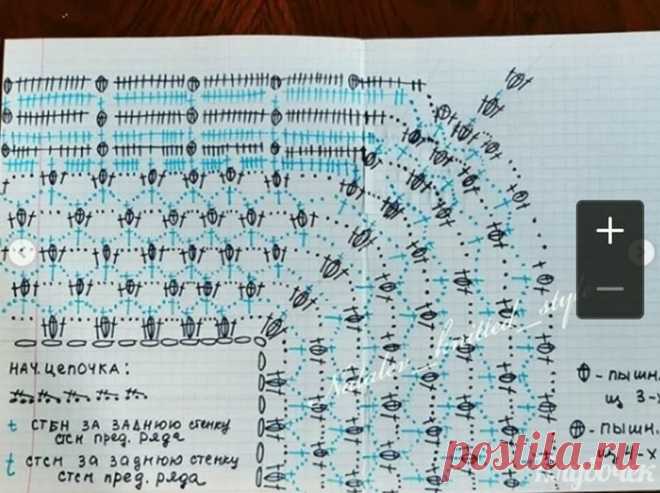 НАЧ. ЦЕПОЧКА:
t СТБН ЗА ЗАДНЮЮ СТЕНКУ
СТСН ПРЕД. РЯДА
t СТСН ЗА ЗАДНЮЮ СТЕНКУ
СТСН ПРЕД. РЯДА
- ПЫШН.
ИЗ 3-Х
- ПЫШН.
ИЗ 4-Х
Natalev_knitted_style
postila.ru